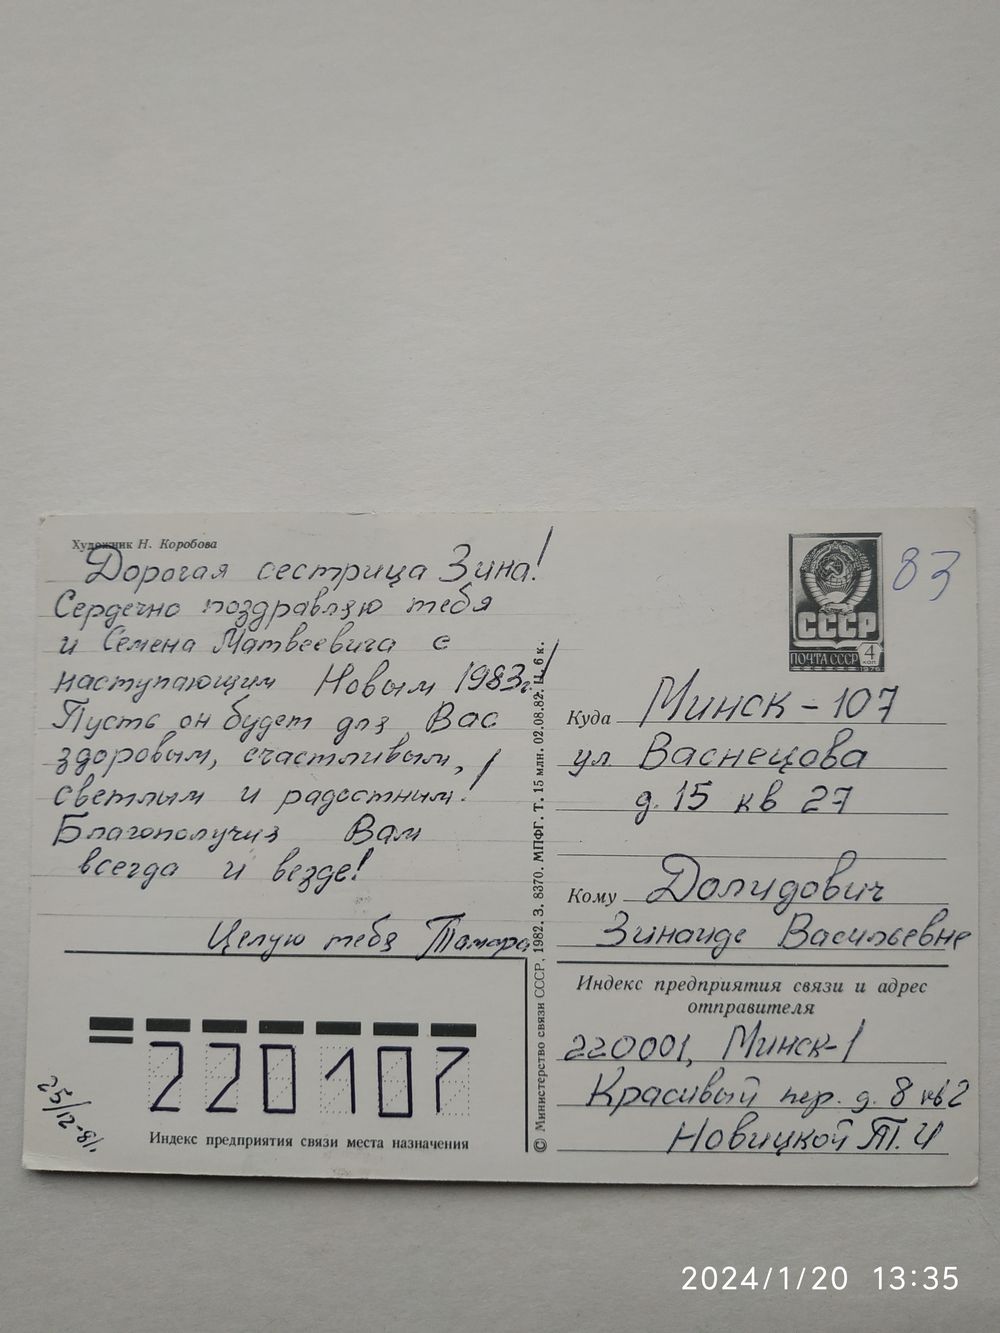 Художник Н. Коробова
Дорогая сестрица Зина!
Сердечно поздравляю тебя
и Семена Матвеевича с
наступающим Новым 1983г.!
Пусть он будет для Вас
здоровым, счастливым,
светлым и радостным!
Благополучия Вам
всегда и везде!
Целую тебя Тамара
25/12-81.
220107
Индекс предприятия связи места назначения
© Министерство связи СССР, 1982. З. 8370. МПФГ. Т. 15 млн. 02.08.82. Ц. 6 к.
СССР
ПОЧТА СССР
4
коп
1976
83
Куда Минск-107
ул Васнецова
д. 15 кв 27
Кому Долидович
Зинаиде Васильевне
Индекс предприятия связи и адрес
отправителя
220001, Минск-1
Красивый пер. д. 8 кв 2
Новицкой Т. И
2024/1/20 13:35